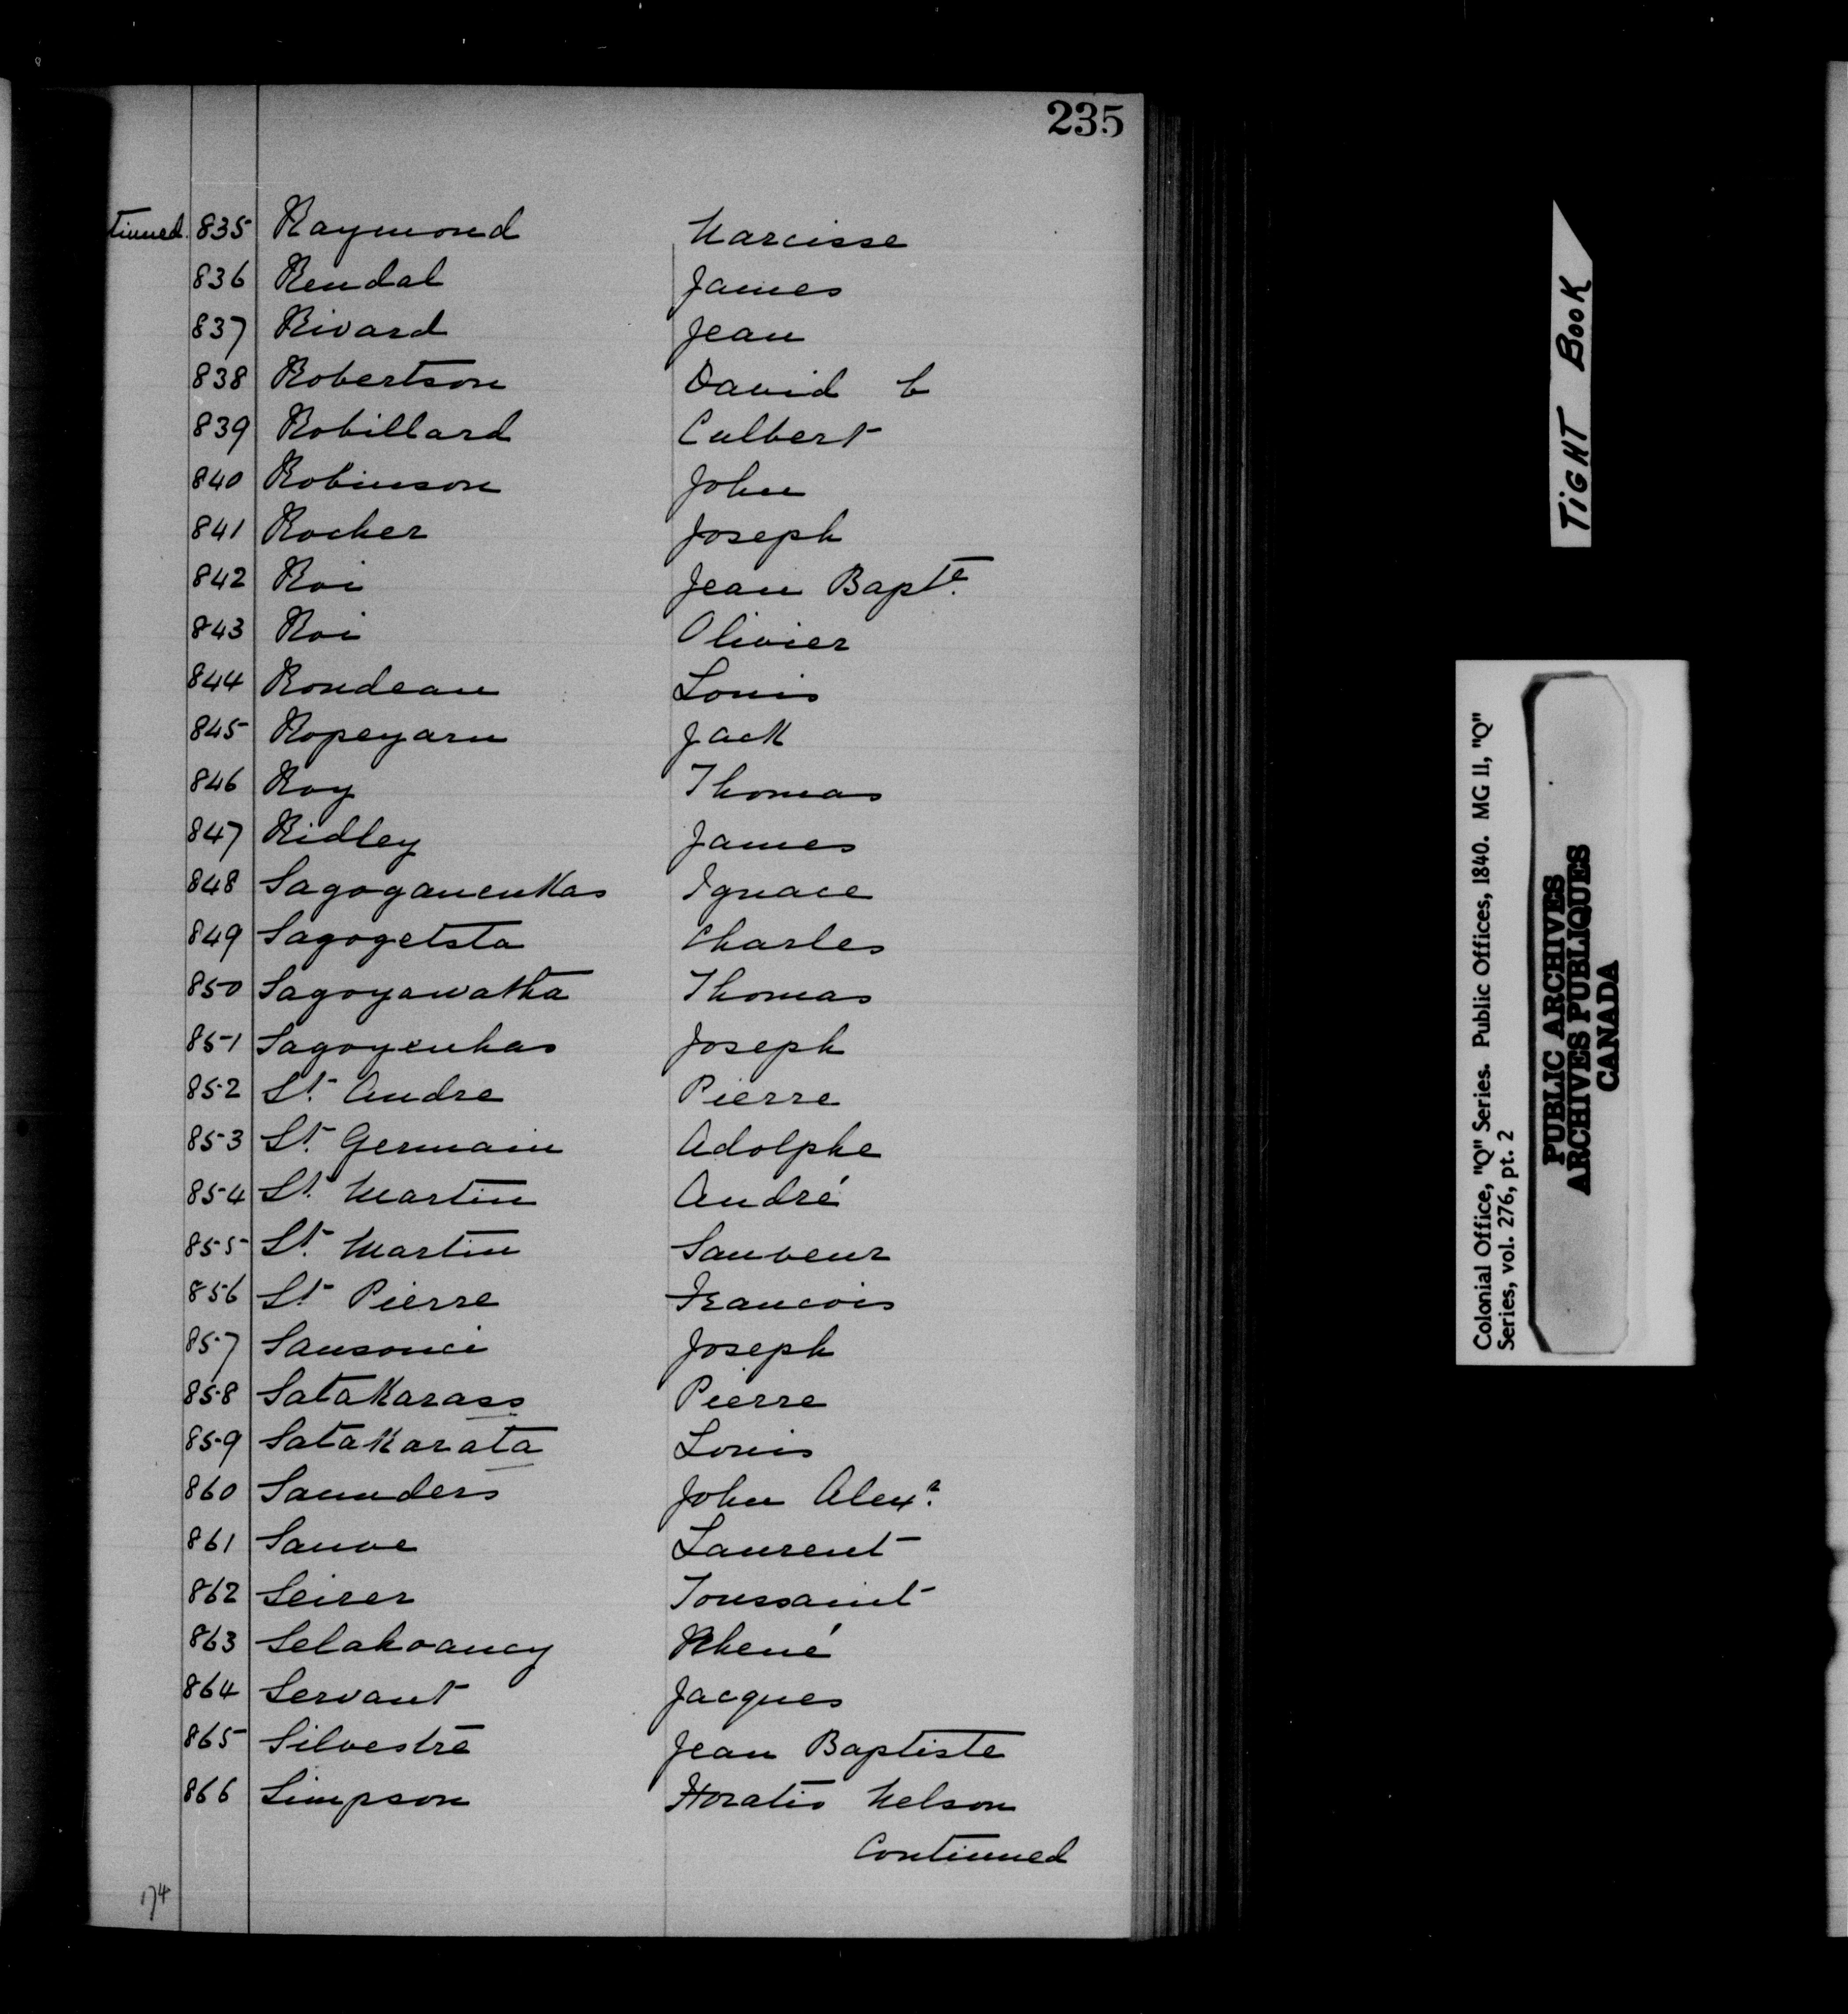 235
tinued. 835 Raymond Narcisse
836 Rendal James
837 Rivard Jean
838 Robertson David C
839 Robillard Culbert
840 Robinson John
841 Rocher Joseph
842 Roi Jean Bapte.
843 Roi Olivier
844 Rondeau Louis
845 Ropeyarn Jack
846 Roy Thomas
847 Ridley James
848 Sagoganenkas Ignace
849 Sagogetsta Charles
850 Sagoyawatha Thomas
851 Sagoyenhas Joseph
852 St. Andre Pierre
853 St. Germain Adolphe
854 St. Martin André
855 St. Martin Sauveur
856 St Pierre Francois
857 Sansouci Joseph
858 Satakarass Pierre
859 Satakarata Louis
860 Saunders John Alexr.
861 Sauve Laurent
862 Seirer Toussaint
863 Selakoancy Rhené
864 Servant Jacques
865 Silvestre Jean Baptiste
866 Simpson Horatio Nelson
Continued
174
TIGHT BOOK
Colonial Office, "Q" Series. Public Offices, 1840. MG 11, "Q"
Series, vol. 276, pt. 2
PUBLIC ARCHIVES
ARCHIVES PUBLIQUES
CANADA